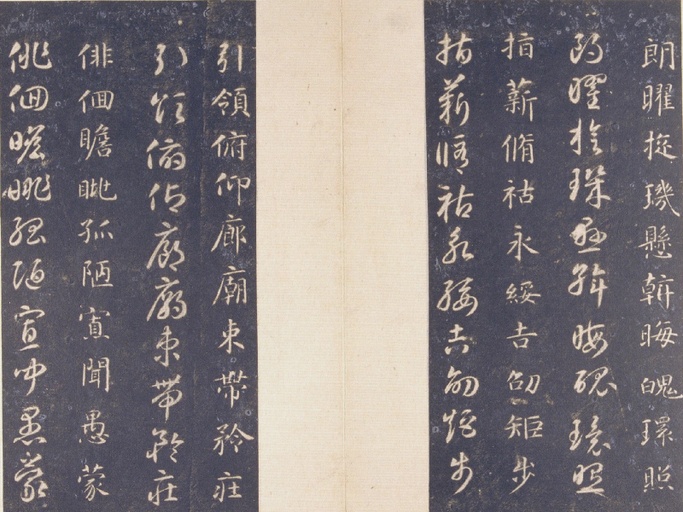 朗曜旋璣懸斡晦魄環照
朗曜旋璣懸斡晦魄環照
指薪脩祜永綏吉劭矩步
指薪脩祜永綏吉劭矩步
引領俯仰廊廟束帶矜莊
引領俯仰廊廟束帶矜莊
俳佪瞻眺孤陋寡聞愚蒙
俳佪瞻眺孤陋寡聞愚蒙